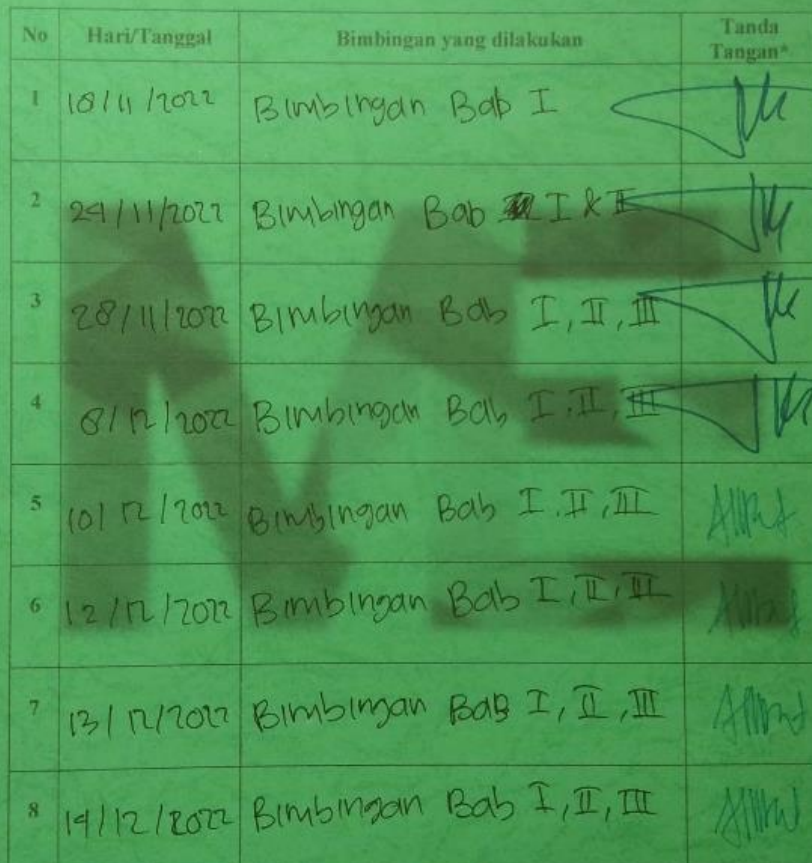 No Hari/Tanggal Bimbingan yang dilakukan Tanda Tangan*
1 18/11/2022 Bimbingan Bab I
2 24/11/2022 Bimbingan Bab I & II
3 28/11/2022 Bimbingan Bab I, II, III
4 8/12/2022 Bimbingan Bab I, II, III
5 10/12/2022 Bimbingan Bab I, II, III
6 12/12/2022 Bimbingan Bab I, II, III
7 13/12/2022 Bimbingan Bab I, II, III
8 14/12/2022 Bimbingan Bab I, II, III